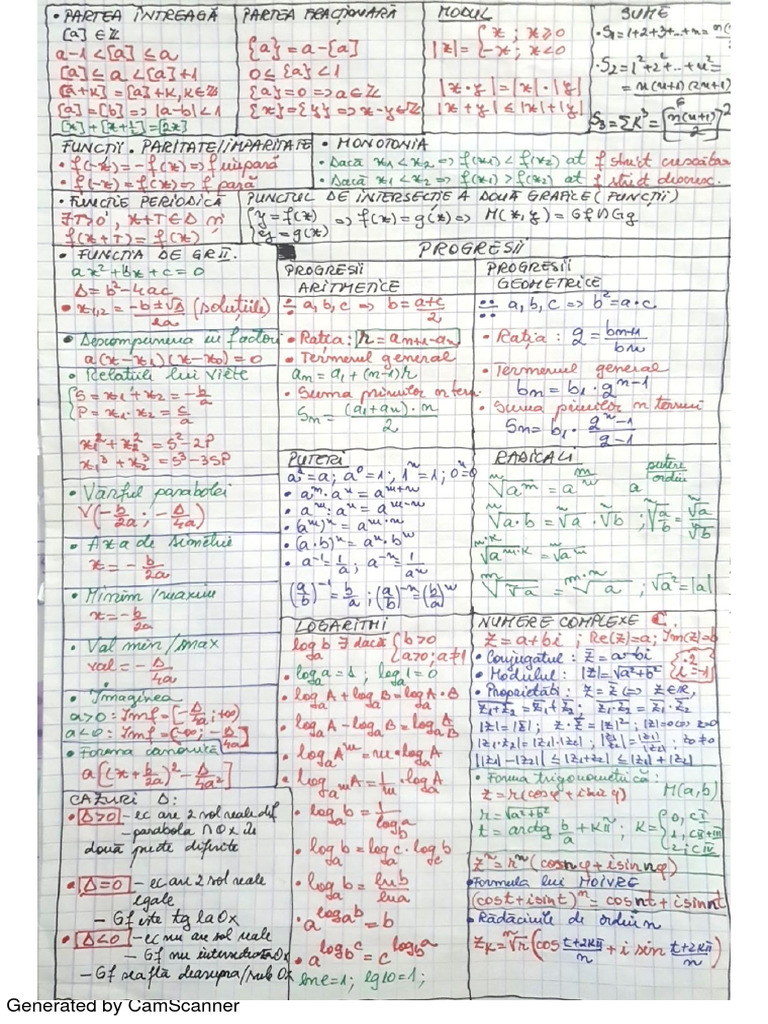 • PARTEA ÎNTREAGĂ
[a] ∈ Z
a-1 < [a] ≤ a
[a] ≤ a < [a]+1
[a+k] = [a]+k, k∈Z
[a] = [b] => |a-b| < 1
[x] + [x+1/2] = [2x]
PARTEA FRACȚIONARĂ
{a} = a-[a]
0 ≤ {a} < 1
{a} = 0 => a∈Z
{x} = {y} => x-y∈Z
MODUL
|x| = { x ; x≥0
-x ; x<0
|x·y| = |x|·|y|
|x+y| ≤ |x|+|y|
SUME
• S₁=1+2+3+..+n=
• S₂=1²+2²+..+n²=
= n(n+1)(2n+1)/6
S₃=∑k³=[n(n+1)/2]²
FUNCȚII. PARITATE/IMPARITATE
• f(-x) = -f(x) => f impară
• f(-x) = f(x) => f pară
• MONOTONIA
• Dacă x₁<x₂ => f(x₁) < f(x₂) at f strict
• Dacă x₁<x₂ => f(x₁) > f(x₂) at f strict
• FUNCȚIE PERIODICĂ
∃T>0, x+T∈D și
f(x+T) = f(x)
PUNCTUL DE INTERSECȚIE A DOUĂ GRAFICE (FUNCȚII)
{ y=f(x)
y=g(x) => f(x)=g(x) => M(x,y) = Gf∩Gg
• FUNCȚIA DE GR II.
ax²+bx+c=0
Δ=b²-4ac
• x₁,₂ = (-b±√Δ)/2a (soluțiile)
• Descompunerea în factori
a(x-x₁)(x-x₂)=0
• Relațiile lui Viète
{ S = x₁+x₂ = -b/a
P = x₁·x₂ = c/a
x₁²+x₂² = S²-2P
x₁³+x₂³ = S³-3SP
• Vârful parabolei
V(-b/2a ; -Δ/4a)
• Axa de simetrie
x = -b/2a
• Minim/maxim
x = -b/2a
• Val min/max
val = -Δ/4a
• Imaginea
a>0: Imf = [-Δ/4a ; +∞)
a<0: Imf = (-∞ ; -Δ/4a]
• Forma canonică
a[(x+b/2a)² - Δ/4a²]
CAZURI Δ:
• Δ>0 - ec are 2 sol reale dif
- parabola ∩ Ox în
două pucte diferite
• Δ=0 - ec are 2 sol reale
egale
- Gf este tg la Ox
• Δ<0 - ec nu are sol reale
- Gf nu intersectează Ox
- Gf se află deasupra/sub Ox
PROGRESII
PROGRESII
ARITMETICE
÷ a, b, c => b = (a+c)/2
• Rația: r = aₙ₊₁-aₙ
• Termenul general
aₙ = a₁+(n-1)r
• Suma primilor n term.
Sₙ = (a₁+aₙ)·n/2
PROGRESII
GEOMETRICE
÷÷ a, b, c => b²=a·c
• Rația: q = bₙ₊₁/bₙ
• Termenul general
bₙ = b₁·qⁿ⁻¹
• Suma primilor n termeni
Sₙ = b₁·(qⁿ-1)/(q-1)
PUTERI
a¹=a; a⁰=1; 1ⁿ=1; 0ⁿ=0
• aᵐ·aⁿ = aᵐ⁺ⁿ
• aᵐ:aⁿ = aᵐ⁻ⁿ
• (aᵐ)ⁿ = aᵐ·ⁿ
• (a·b)ⁿ = aⁿ·bⁿ
• a⁻¹ = 1/a ; a⁻ⁿ = 1/aⁿ
(a/b)⁻¹ = b/a ; (a/b)⁻ⁿ = (b/a)ⁿ
RADICALI
ⁿ√aᵐ = a^(m/n) a^(putere/ordin)
ⁿ√a·b = ⁿ√a·ⁿ√b ; ⁿ√(a/b) = ⁿ√a/ⁿ√b
ⁿ·ᵏ√aᵐ·ᵏ = ⁿ√aᵐ
ᵐ√ⁿ√a = ᵐ·ⁿ√a ; √a² = |a|
LOGARITMI
logₐb ∃ dacă { b>0
a>0; a≠1
• logₐa=1 ; logₐ1=0
• logₐA+logₐB=logₐA·B
• logₐA-logₐB=logₐA/B
• logₐAᵐ=m·logₐA
• log_aⁿ A=1/n·logₐA
• logₐb = 1/log_b a
• logₐb = logₐc·log_c b
• logₐb = lnb/lna
• a^(logₐb) = b
• a^(log b c) = c^(log b a)
lne=1; lg10=1;
NUMERE COMPLEXE C.
z=a+bi ; Re(z)=a; Im(z)=b
• Conjugatul: z̄=a-bi
• Modulul: |z|=√(a²+b²)
i²=-1
• Proprietăți: z=z̄ <=> z∈R,
z̄₁+z̄₂ = z̄₁+z̄₂ ; z̄₁·z̄₂ = z̄₁·z̄₂
|z|=|z̄| ; z·z̄=|z|² ; |z|=0 <=> z=0
|z₁·z₂|=|z₁|·|z₂| ; |z₁/z₂|=|z₁|/|z₂| ; z₂≠0
||z₁|-|z₂|| ≤ |z₁+z₂| ≤ |z₁|+|z₂|
• Forma trigonometrică:
z=r(cosφ+isinφ) M(a,b)
r=√(a²+b²)
t=arctg b/a+kπ ; k={ 0, CI
1, CII+III
2, CIV
zⁿ=rⁿ(cosnφ+isinnφ)
• Formula lui MOIVRE
(cost+isint)ⁿ=cosnt+isinnt
• Rădăcinile de ordin n
z_k=ⁿ√r(cos (t+2kπ)/n+i sin (t+2kπ)/n)
Generated by CamScanner